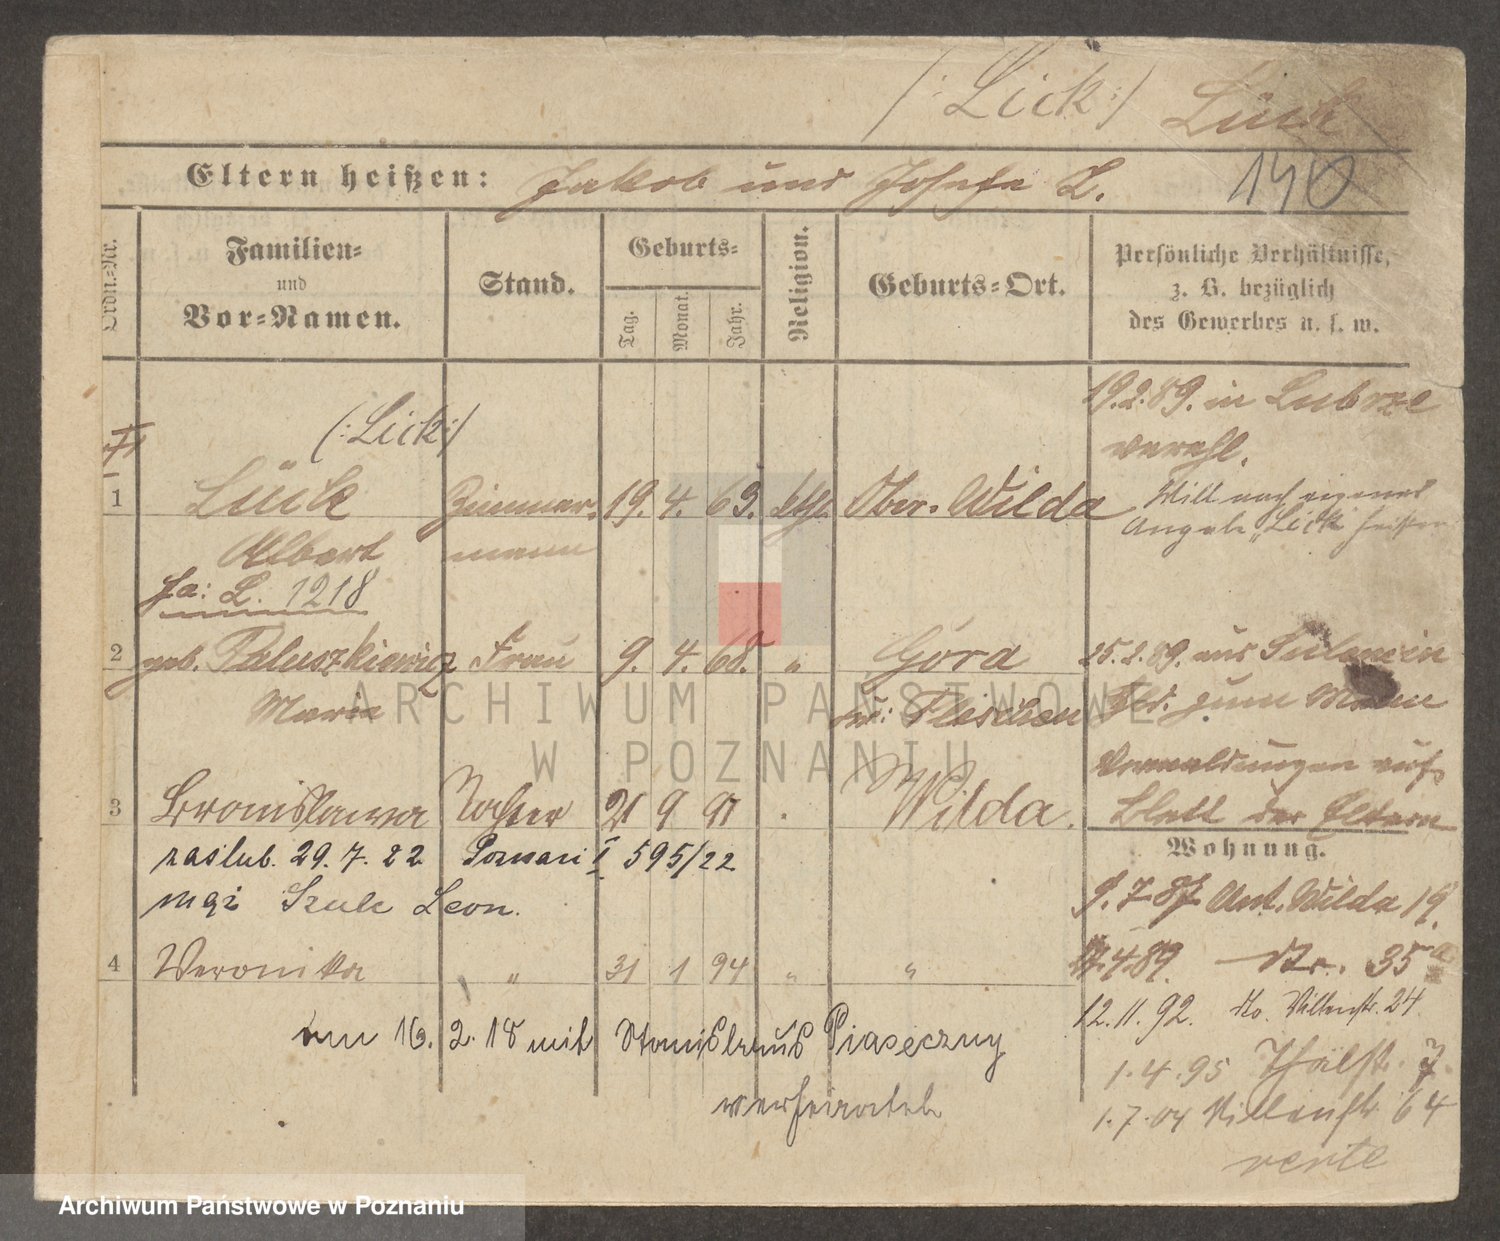 (: Lick :) Lück
Eltern heißen: Jakob und Josefa L. 140
Ordn.-Nr. Familien- und Vor-Namen. Stand. Geburts- Tag. Monat. Jahr. Religion. Geburts-Ort. Persönliche Verhältnisse, z. B. bezüglich des Gewerbes u. s. w.
19.2.89. in
verehl.
(: Lick :)
1 Lück Zimmer- 19. 4. 63. kth. Ober-Wilda Will nach eigener
Albert mann Angabe „Lick“ heißen
Fa: L. 1218
2 geb. Paluszkiewicz Frau 9. 4. 68. " Góra 25.2.89. aus
Maria Kr: Pleschen zum
3 Bronisława Tochter 21 9 91 . Wilda.
Blatt der Eltern
zaślub. 29.7.22 Poznań I 595/22
Wohnung.
mąż Szulc Leon.
9.7.87 Ant. Wilda 19.
4 Veronika " 31 1 94 " "
4.89. 35a
12.11.92. do. Villenstr. 24
am 16. 2. 18 mit Stanislaus Piaseczny
1.4.95 Thalstr. 7.
verheiratet
1.7.04 Villenstr 64
verte
ARCHIWUM PAŃSTWOWE
W POZNANIU
Archiwum Państwowe w Poznaniu